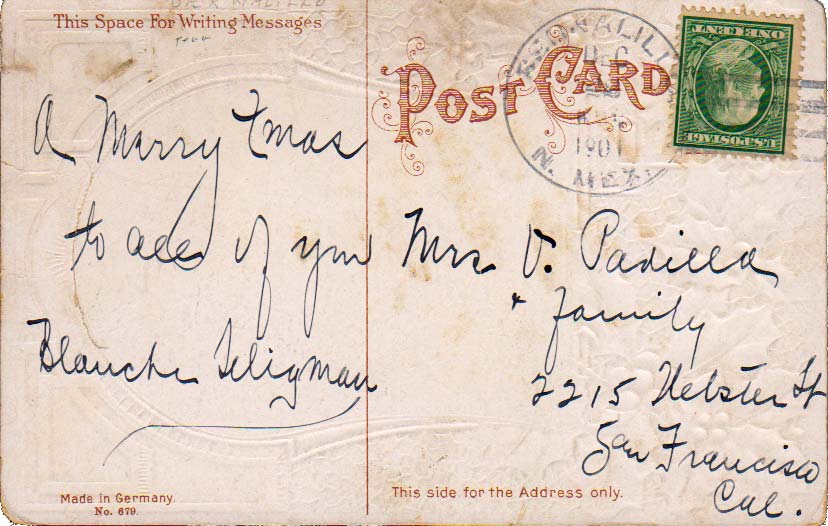 This Space For Writing Messages
POST CARD
DEC
1901
N. MEX.
ONE CENT
U.S. POSTAGE
A Merry Xmas
to all of you
Blanche Seligman
Mrs V. Padilla
+ family
2215 Webster St
San Francisco
Cal.
Made in Germany.
No. 679.
This side for the Address only.